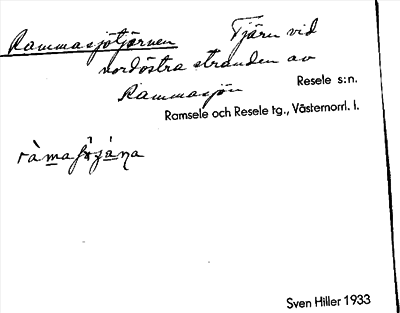 Rammasjötjärnen Tjärn vid
nordöstra stranden av
Rammasjön
Resele s:n.
Ramsele och Resele tg., Västernorrl. l.
Sven Hiller 1933